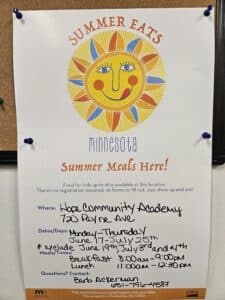 SUMMER EATS
minnesota
Summer Meals Here!
Food for kids up to 18 is available at this location.
There's no registration required, no forms to fill out. Just show up and eat!
Where: Hope Community Academy
720 Payne Ave
Dates/Days: Monday-Thursday
June 17-July 25th
* exclude June 19th, July 3rd and 4th
Meals/Times: Breakfast 8:00am-9:00am
Lunch 11:00am-12:30pm
Questions? Contact:
Barb Ackerman
651-796-4587